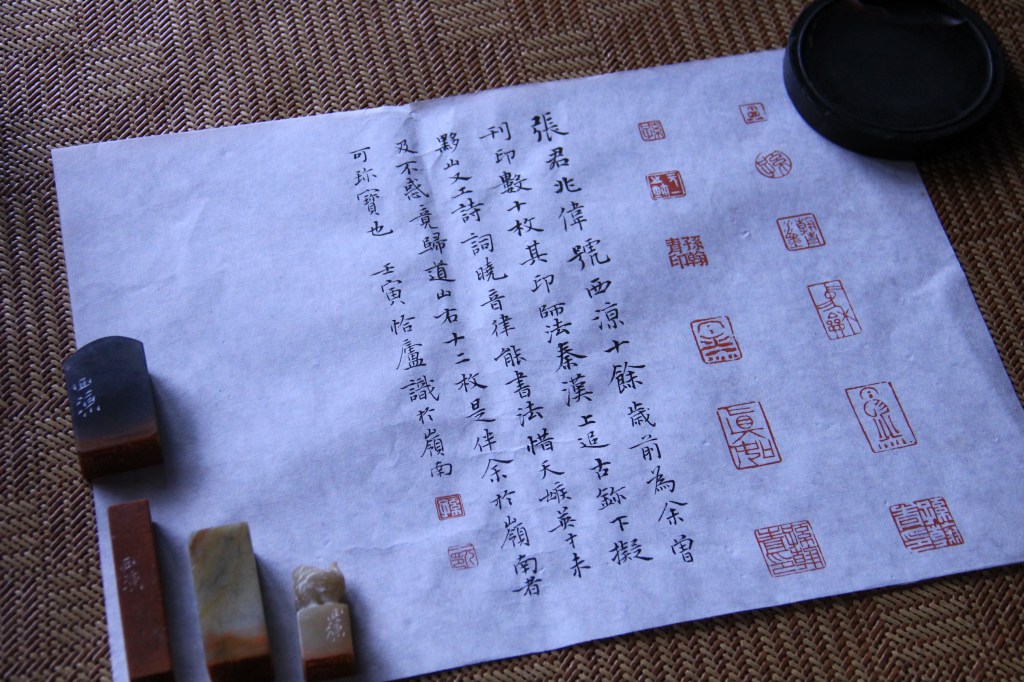 張君兆偉號西涼十餘歲前為余曾
刊印數十枚其印師法秦漢上追古鉨下擬
黟山又工詩詞曉音律能書法惜天嫉英才未
及不惑竟歸道山右十二枚是伴余於嶺南者
可珎寶也 壬寅恰廬識於嶺南
孫
西涼
西涼